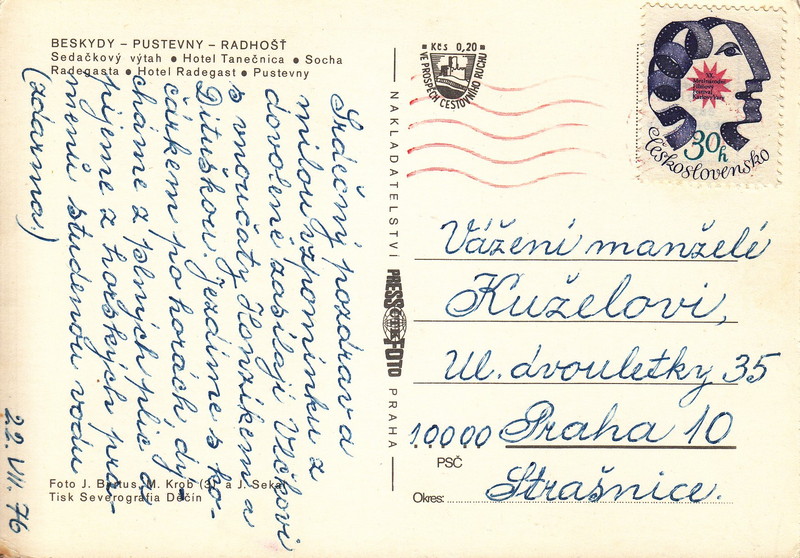 BESKYDY – PUSTEVNY – RADHOŠŤ
Sedačkový výtah ● Hotel Tanečnica ● Socha
Radegasta ● Hotel Radegast ● Pustevny
Srdečný pozdrav a
milou vzpomínku z
dovolené zasílají Vlčkovi
s vnoučaty Honzíkem a
Dituškou. Jezdíme s ko-
čárkem po horách dý-
cháme z plných plic a
pijeme z horských pra-
menů studenou vodu
(zdarma.)
22. VII. 76
Foto J. Bartus, M. Krob (3) a J. Sekal
Tisk Severografia Děčín
NAKLADATELSTVÍ
PRESSFOTO
PRAHA
Kčs 0,20
VE PROSPĚCH CESTOVNÍHO RUCHU
XX.
Mezinárodní
filmový
festival
Karlovy Vary
30h
Československo
Vážení manželé
Kuželovi,
Ul. dvouletky 35
10000 Praha 10
PSČ
Strašnice.
Okres: